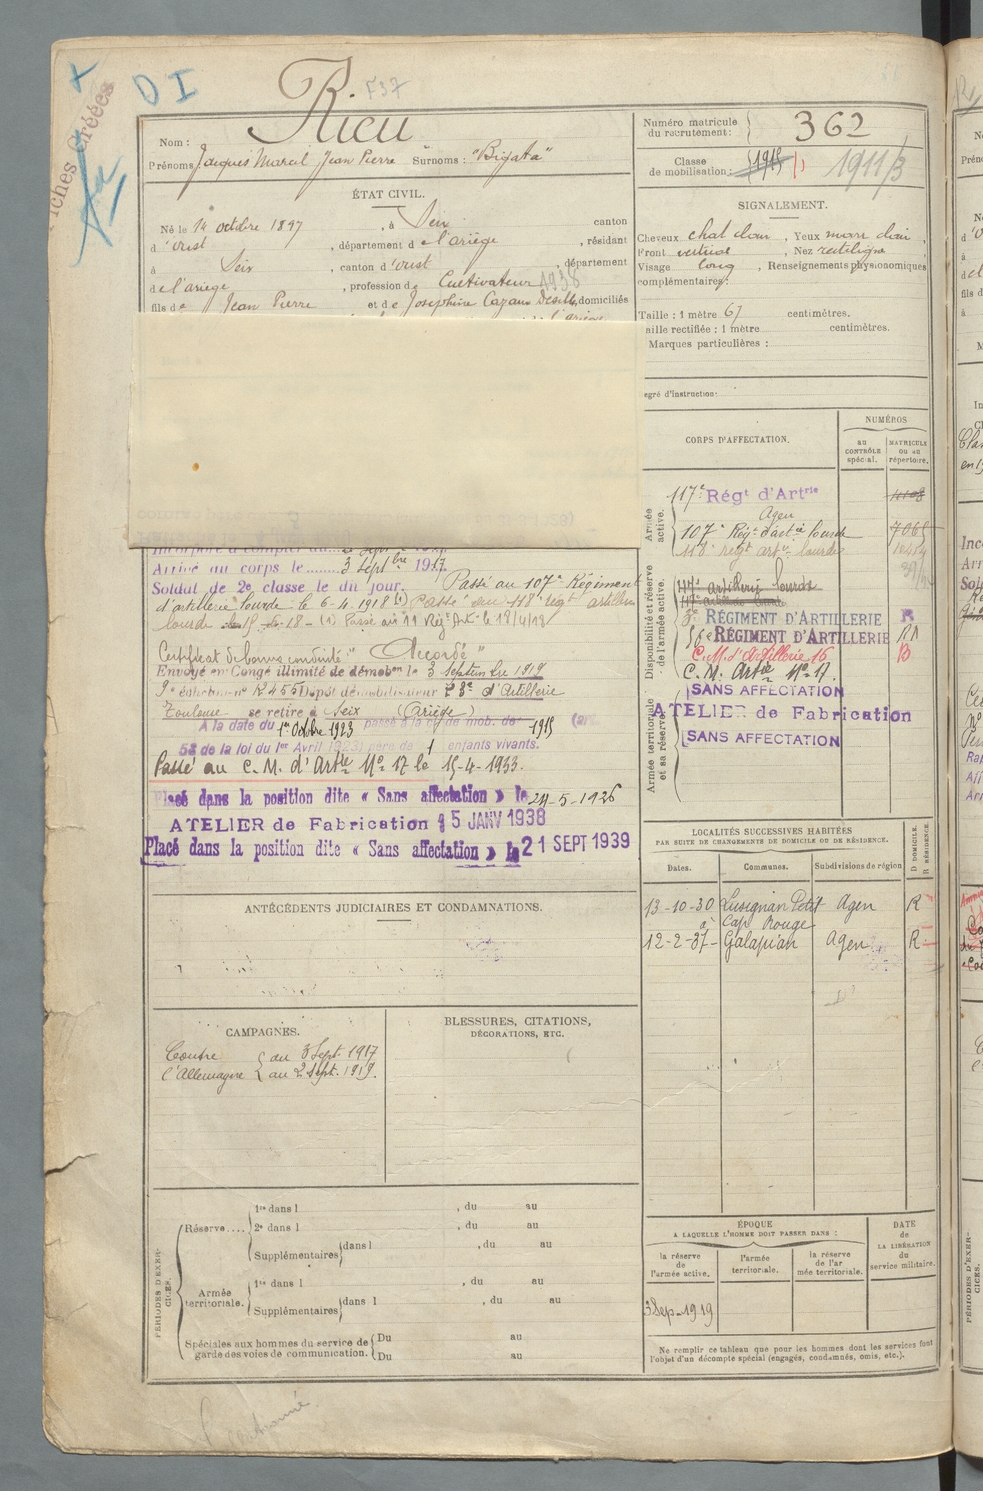 D I
Fiches Créées
Ricu
537
Nom :
Prénoms Jacques Marcel Jean Pierre Surnoms : "Brigata"
Numéro matricule du recrutement : 362
Classe de mobilisation : 1915 1911/3
ÉTAT CIVIL.
Né le 14 octobre 1897, à Seix canton
d'oust, département de l'ariège, résidant
à Seix, canton d'oust, département
de l'ariege, profession de Cultivateur 1938
fils de Jean Pierre et de Josephine Cazaux domiciliés
SIGNALEMENT.
Cheveux chat clair, Yeux marr clair,
Front vertical, Nez rectiligne
Visage long, Renseignements physionomiques
complémentaires :
Taille : 1 mètre 67 centimètres.
Taille rectifiée : 1 mètre centimètres.
Marques particulières :
egré d'instruction :
CORPS D'AFFECTATION.
NUMÉROS
au CONTRÔLE spécial.
MATRICULE ou au répertoire.
Armée active.
117e Régt d'Artrie
Agen
107e Régt d'artie lourde 7065
118e régt artie lourde
Disponibilité et réserve de l'armée active.
117e artillerie lourde
117e artillerie lourde
RÉGIMENT D'ARTILLERIE R
RÉGIMENT D'ARTILLERIE RD
C.M. d'Artillerie 16 B
C. M. Artie No 17.
Armée territoriale et sa réserve
SANS AFFECTATION
ATELIER de Fabrication
SANS AFFECTATION
Incorporé à compter du
Arrivé au corps le........3 Septbre 1917.
Soldat de 2e classe le dit jour. Passé au 107e Régiment
d'artillerie lourde le 6-4-1918 (1) Passé au 118e régt artillerie
lourde (1) Passé au 11 Rég Art. le 18/4/18
Certificat de bonne conduite : "Accordé"
Envoyé en Congé illimité de démobon le 3 septembre 1919
9e échelon no R455 Dépôt démobilisateur 23e d'Artillerie
Toulouse se retire à Seix (Ariège)
A la date du 1er Octobre 1923 passé à la cl. de mob. de 1915 (art.
58 de la loi du 1er Avril 1923) père de 1 enfants vivants.
Passé au C. M. d'Artie No 17 le 15-4-1933.
Placé dans la position dite « Sans affectation » le 24-5-1926
ATELIER de Fabrication 15 JANV 1938
Placé dans la position dite « Sans affectation » le 21 SEPT 1939
LOCALITÉS SUCCESSIVES HABITÉES
PAR SUITE DE CHANGEMENTS DE DOMICILE OU DE RÉSIDENCE.
Dates. Communes. Subdivisions de région D DOMICILE. R RÉSIDENCE.
13-10-30 Lusignan Petit Agen R
à Cap Rouge
12-2-37- Galapian Agen R
ANTÉCÉDENTS JUDICIAIRES ET CONDAMNATIONS.
CAMPAGNES.
Contre l'Allemagne { du 3 Sept. 1917
au 2 Sept. 1919.
BLESSURES, CITATIONS,
DÉCORATIONS, ETC.
PÉRIODES D'EXERCICES.
Réserve.... 1re dans l , du au
2e dans l , du au
Supplémentaires dans l , du au
Armée territoriale. 1re dans l , du au
Supplémentaires dans l , du au
Spéciales aux hommes du service de garde des voies de communication. Du au
Du au
ÉPOQUE
A LAQUELLE L'HOMME DOIT PASSER DANS :
DATE de LA LIBÉRATION du service militaire.
la réserve de l'armée active.
l'armée territoriale.
la réserve de l'armée territoriale.
3 Sep. 1919
Ne remplir ce tableau que pour les hommes dont les services font
l'objet d'un décompte spécial (engagés, condamnés, omis, etc.).